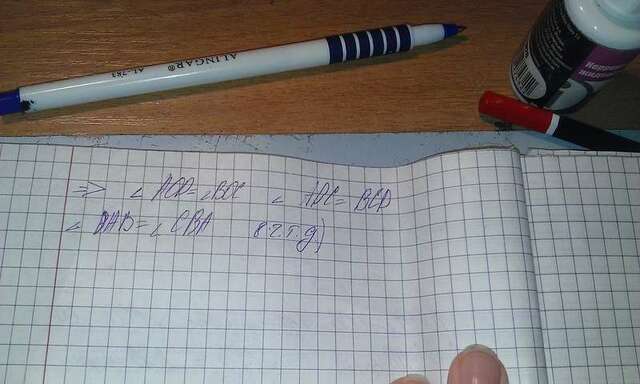 ALINGAR® AL-783
⇒ ∠ ACD = ∠ BDC ∠ ADC = BCD
∠ DAB = ∠ CBA (ч.т.д)